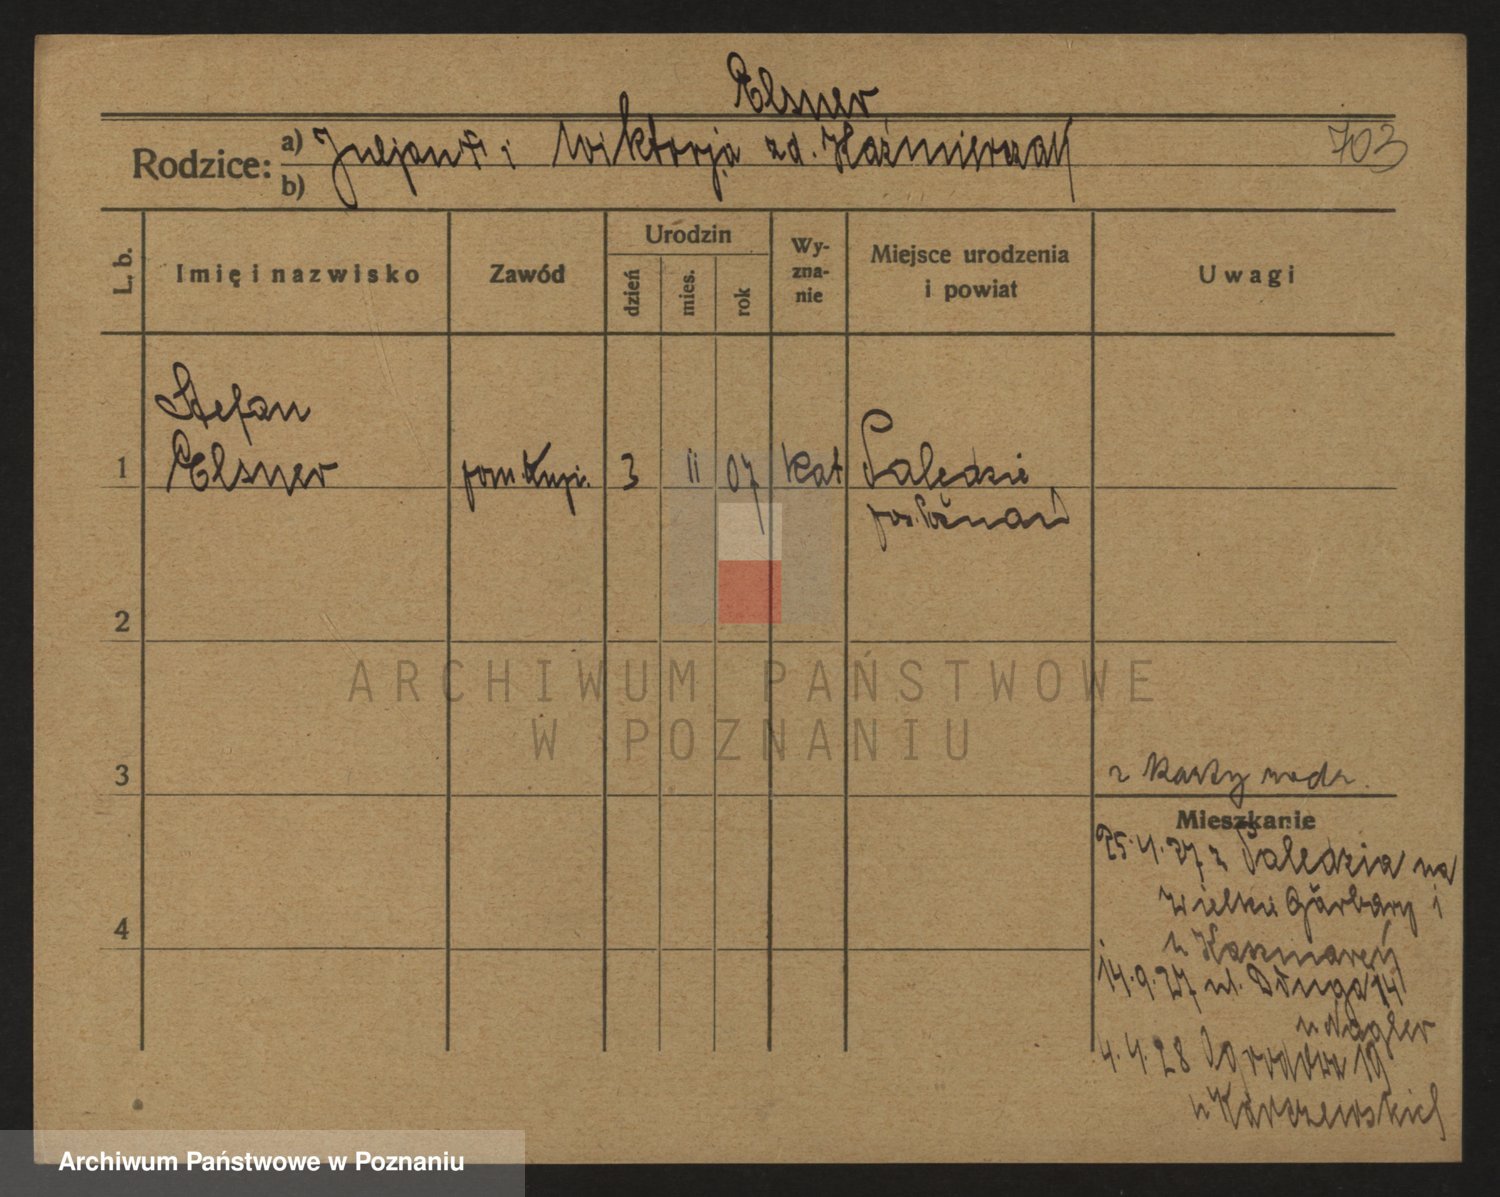 Elsner
Rodzice: a) Juljan i Wiktorja zd. Kaźmierczak 703
b)
L. b. Imię i nazwisko Zawód Urodzin dzień mies. rok Wyznanie Miejsce urodzenia i powiat Uwagi
Stefan
1 Elsner pom. kupi. 3 II 07 kat Palędzie
pow. Poznań
2
ARCHIWUM PAŃSTWOWE
W POZNANIU
3 z karty rodz.
Mieszkanie
25.4.27 z Palędzia na
Wielkie Garbary
4
14.9.27 ul. Długa 14
u Nagler
4.4.28 Ogrodowa 19
u Karczewskich
Archiwum Państwowe w Poznaniu